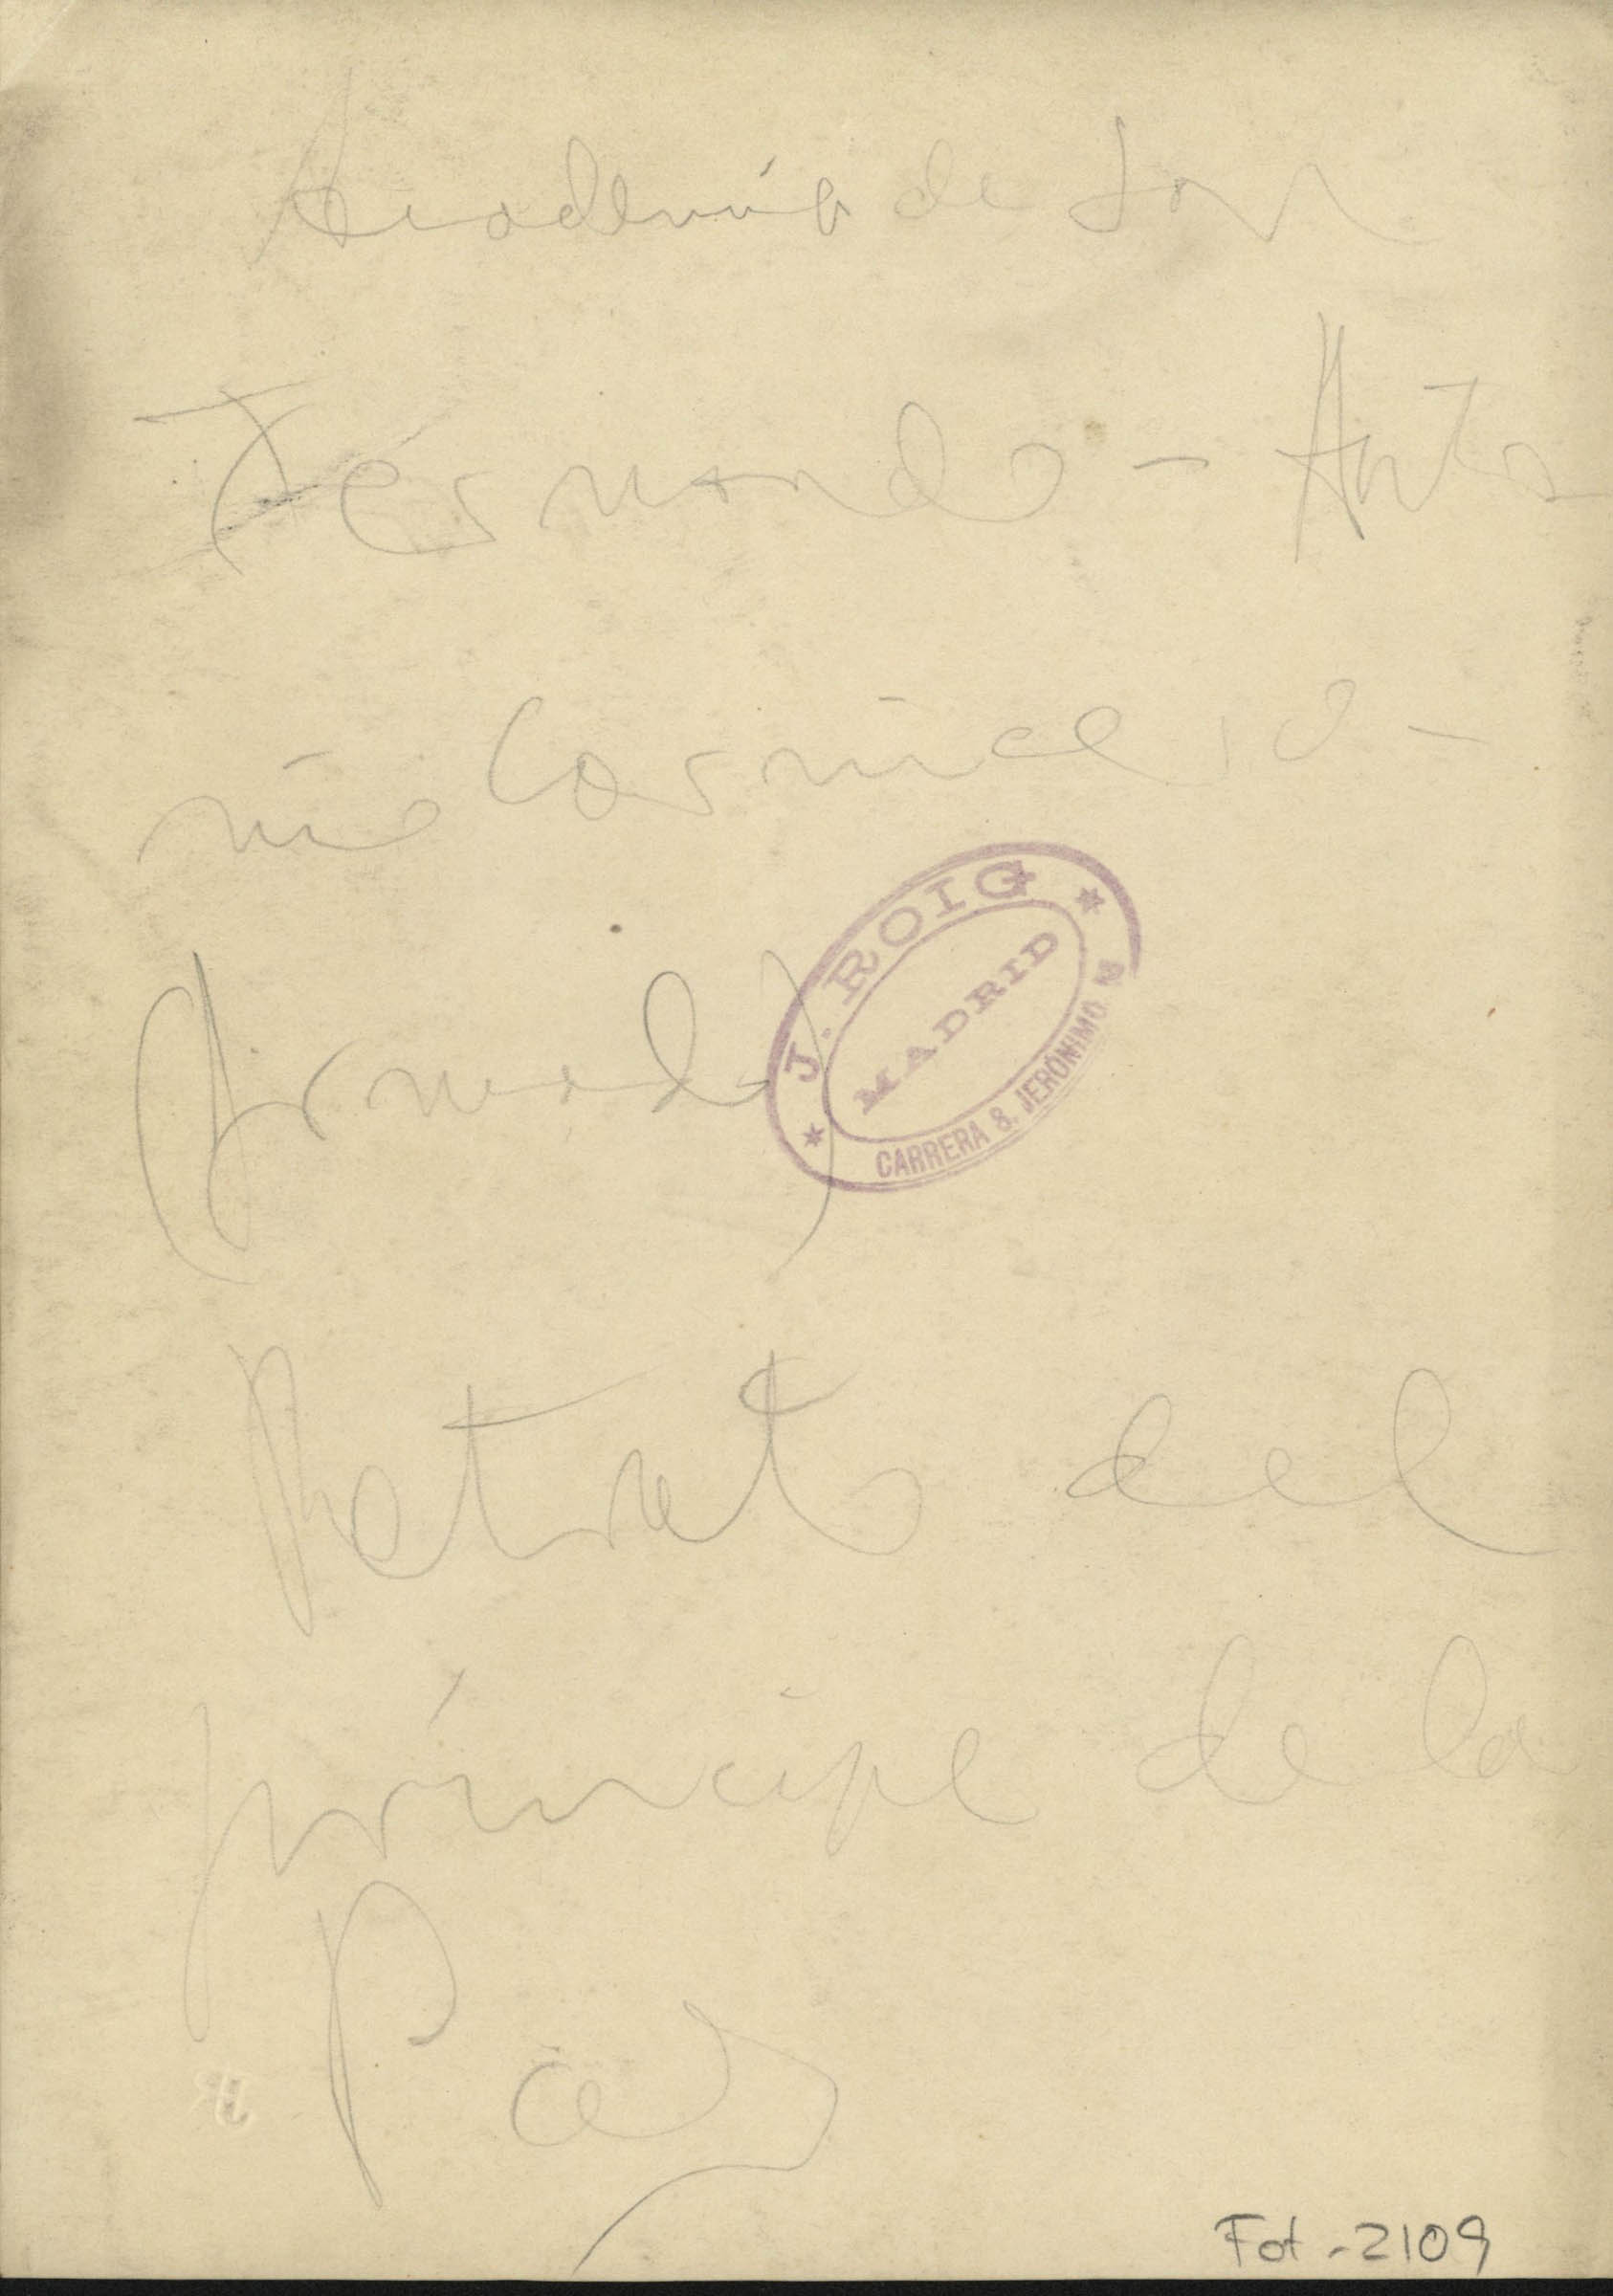 Academia de San
Fernando - Anto
nio Carnicero -
(Armada)
J. ROIG
MADRID
CARRERA S. JERÓNIMO
Retrato del
príncipe de la
Paz
Fot - 2109